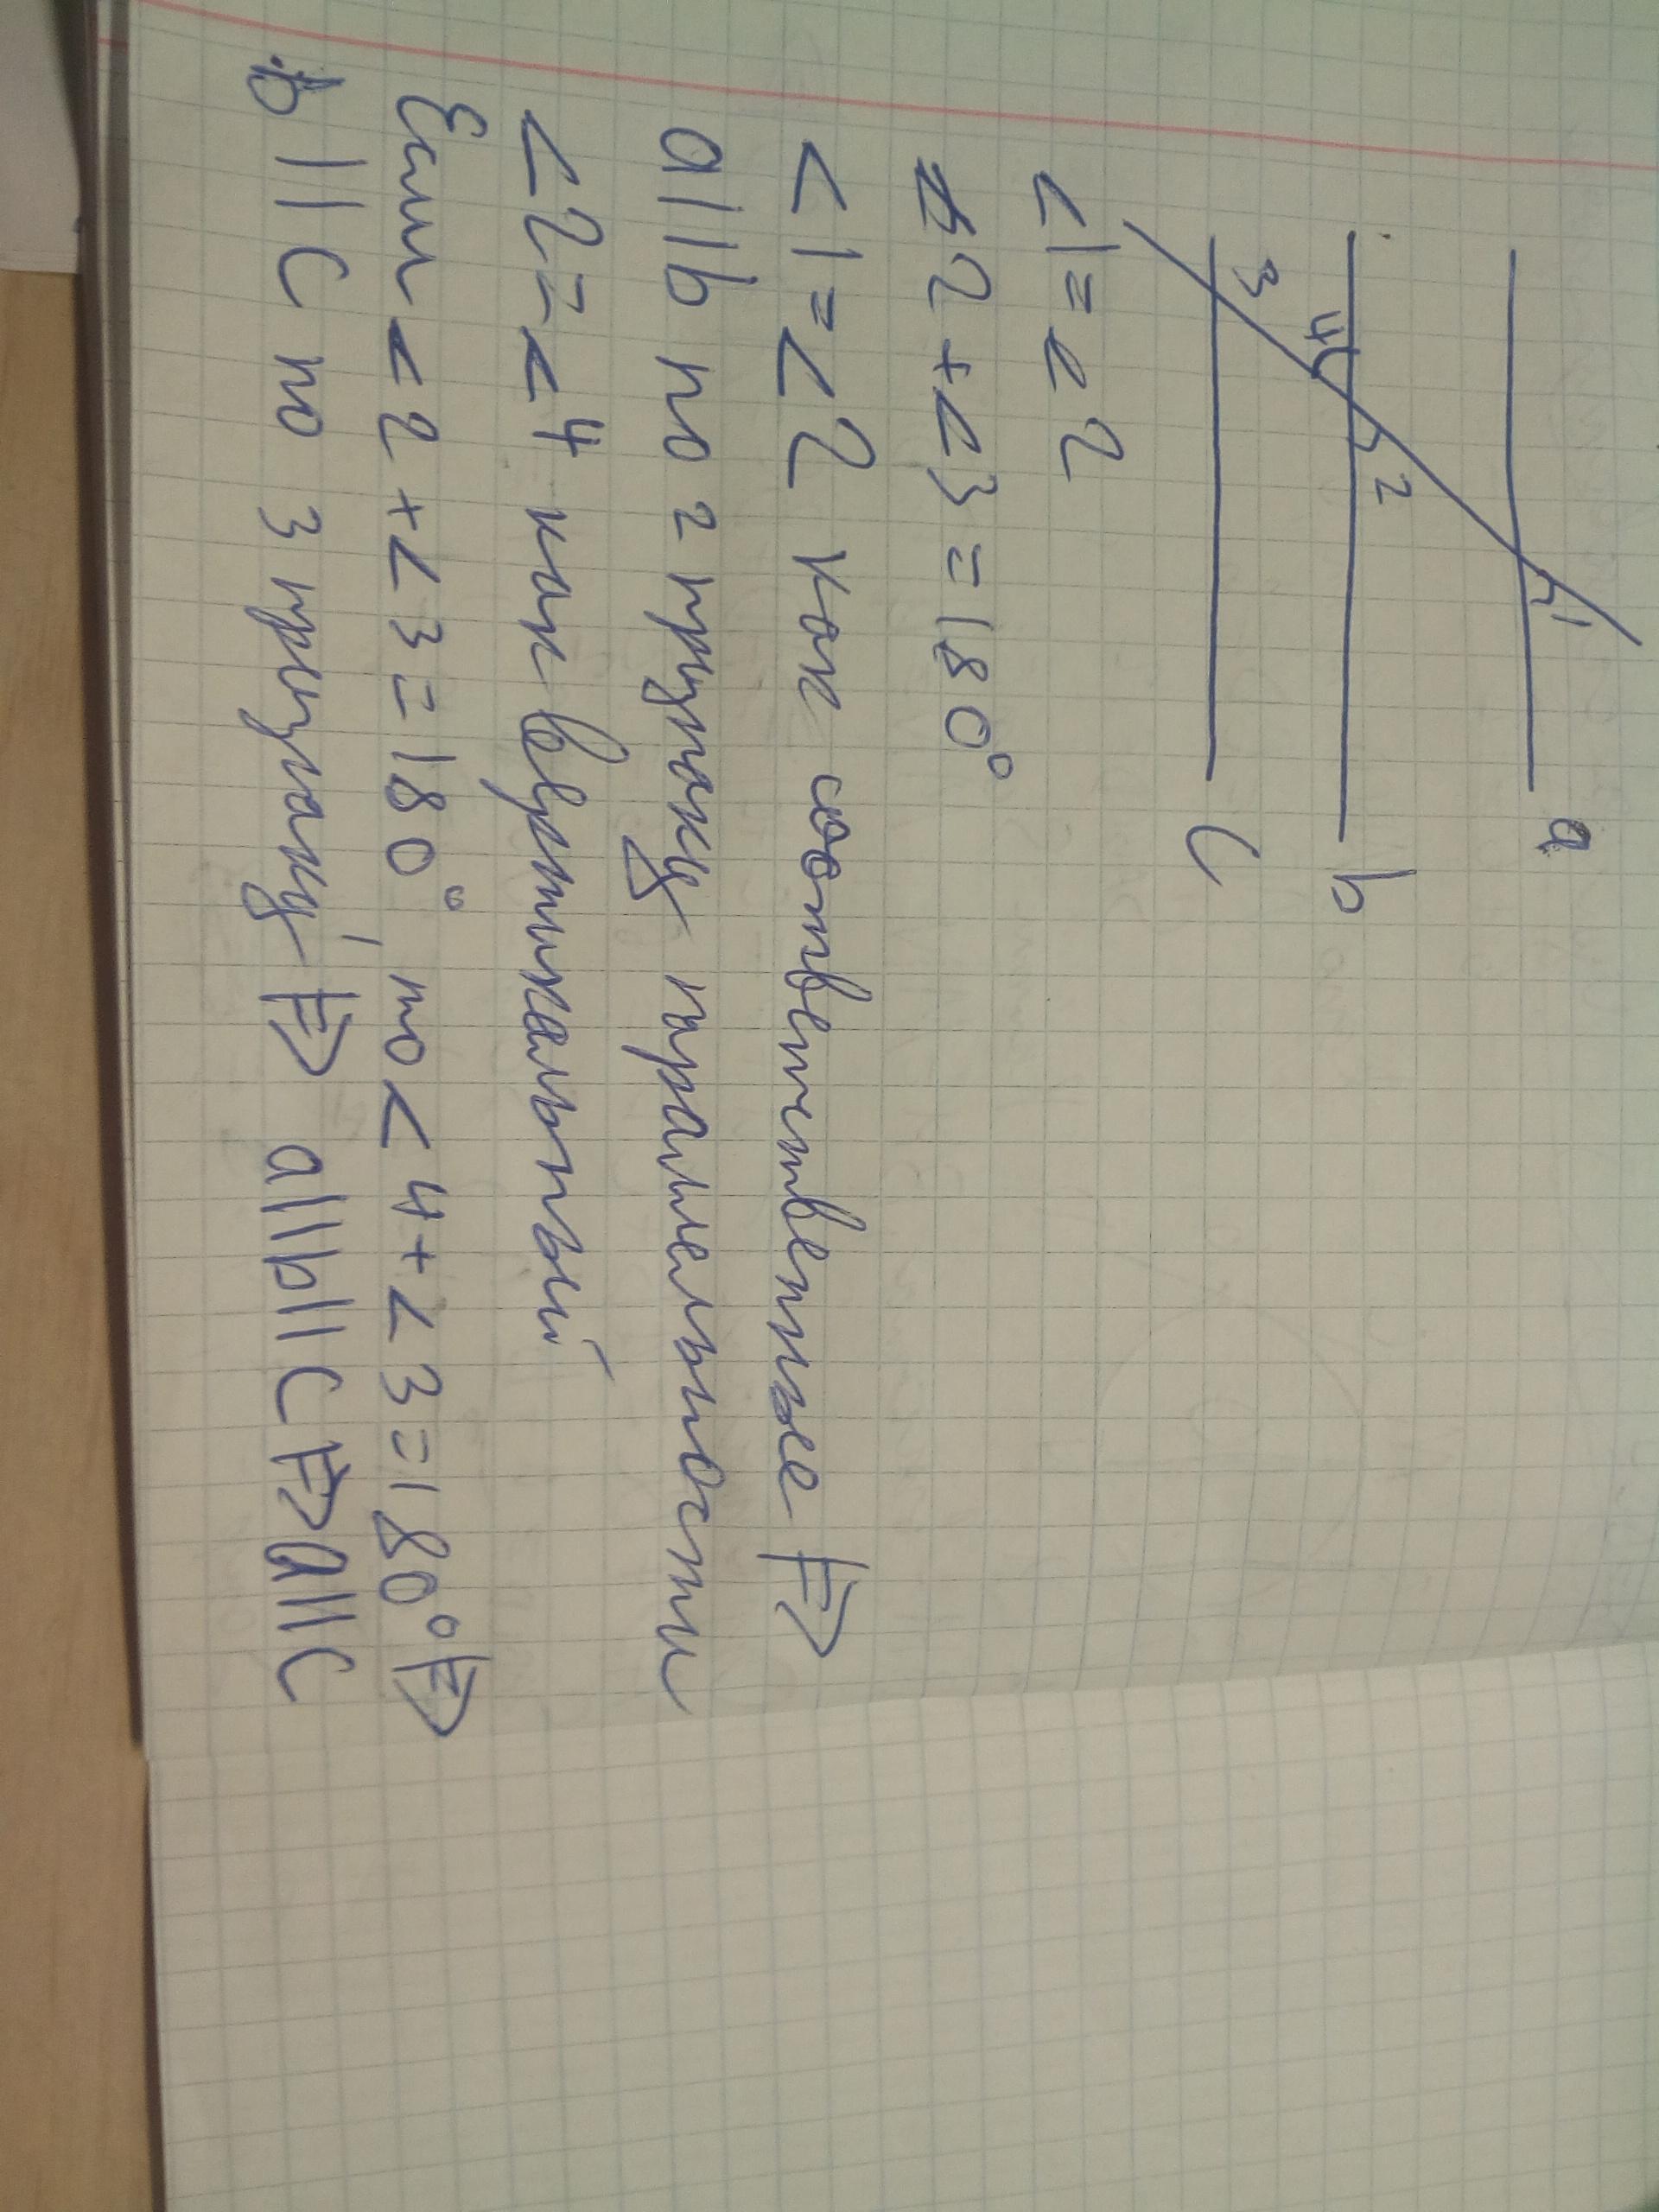 a
1
2
b
4
3
c
<1=<2
<2+<3=180°
<1=<2 как соответственные =>
a||b по 2 признаку паралельности
<2=<4 как вертикальный
Если <2+<3=180°, то <4+<3=180° =>
b||c по 3 признаку => a||b||c => a||c